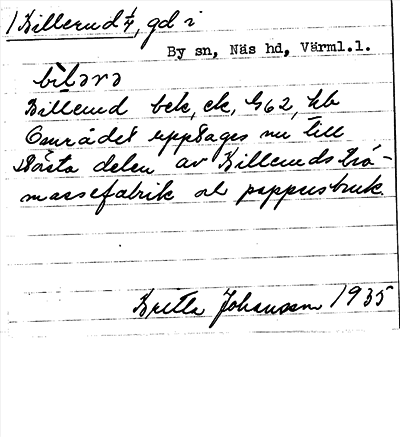 1 Billerud 1/4, gd i
By sn, Näs hd, Värml.l.
Billerud bek, ek, G62, hb
Området upptages nu till
största delen av Billeruds trä-
massefabrik och pappersbruk.
Bretta Johansson 1935